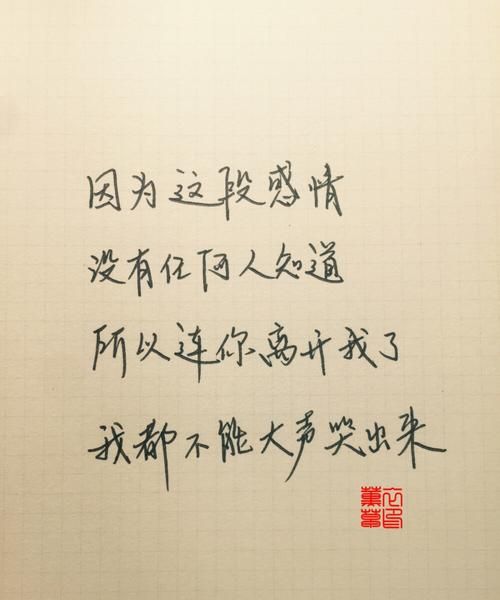 因为这段感情
没有任何人知道
所以连你离开我了
我都不能大声哭出来